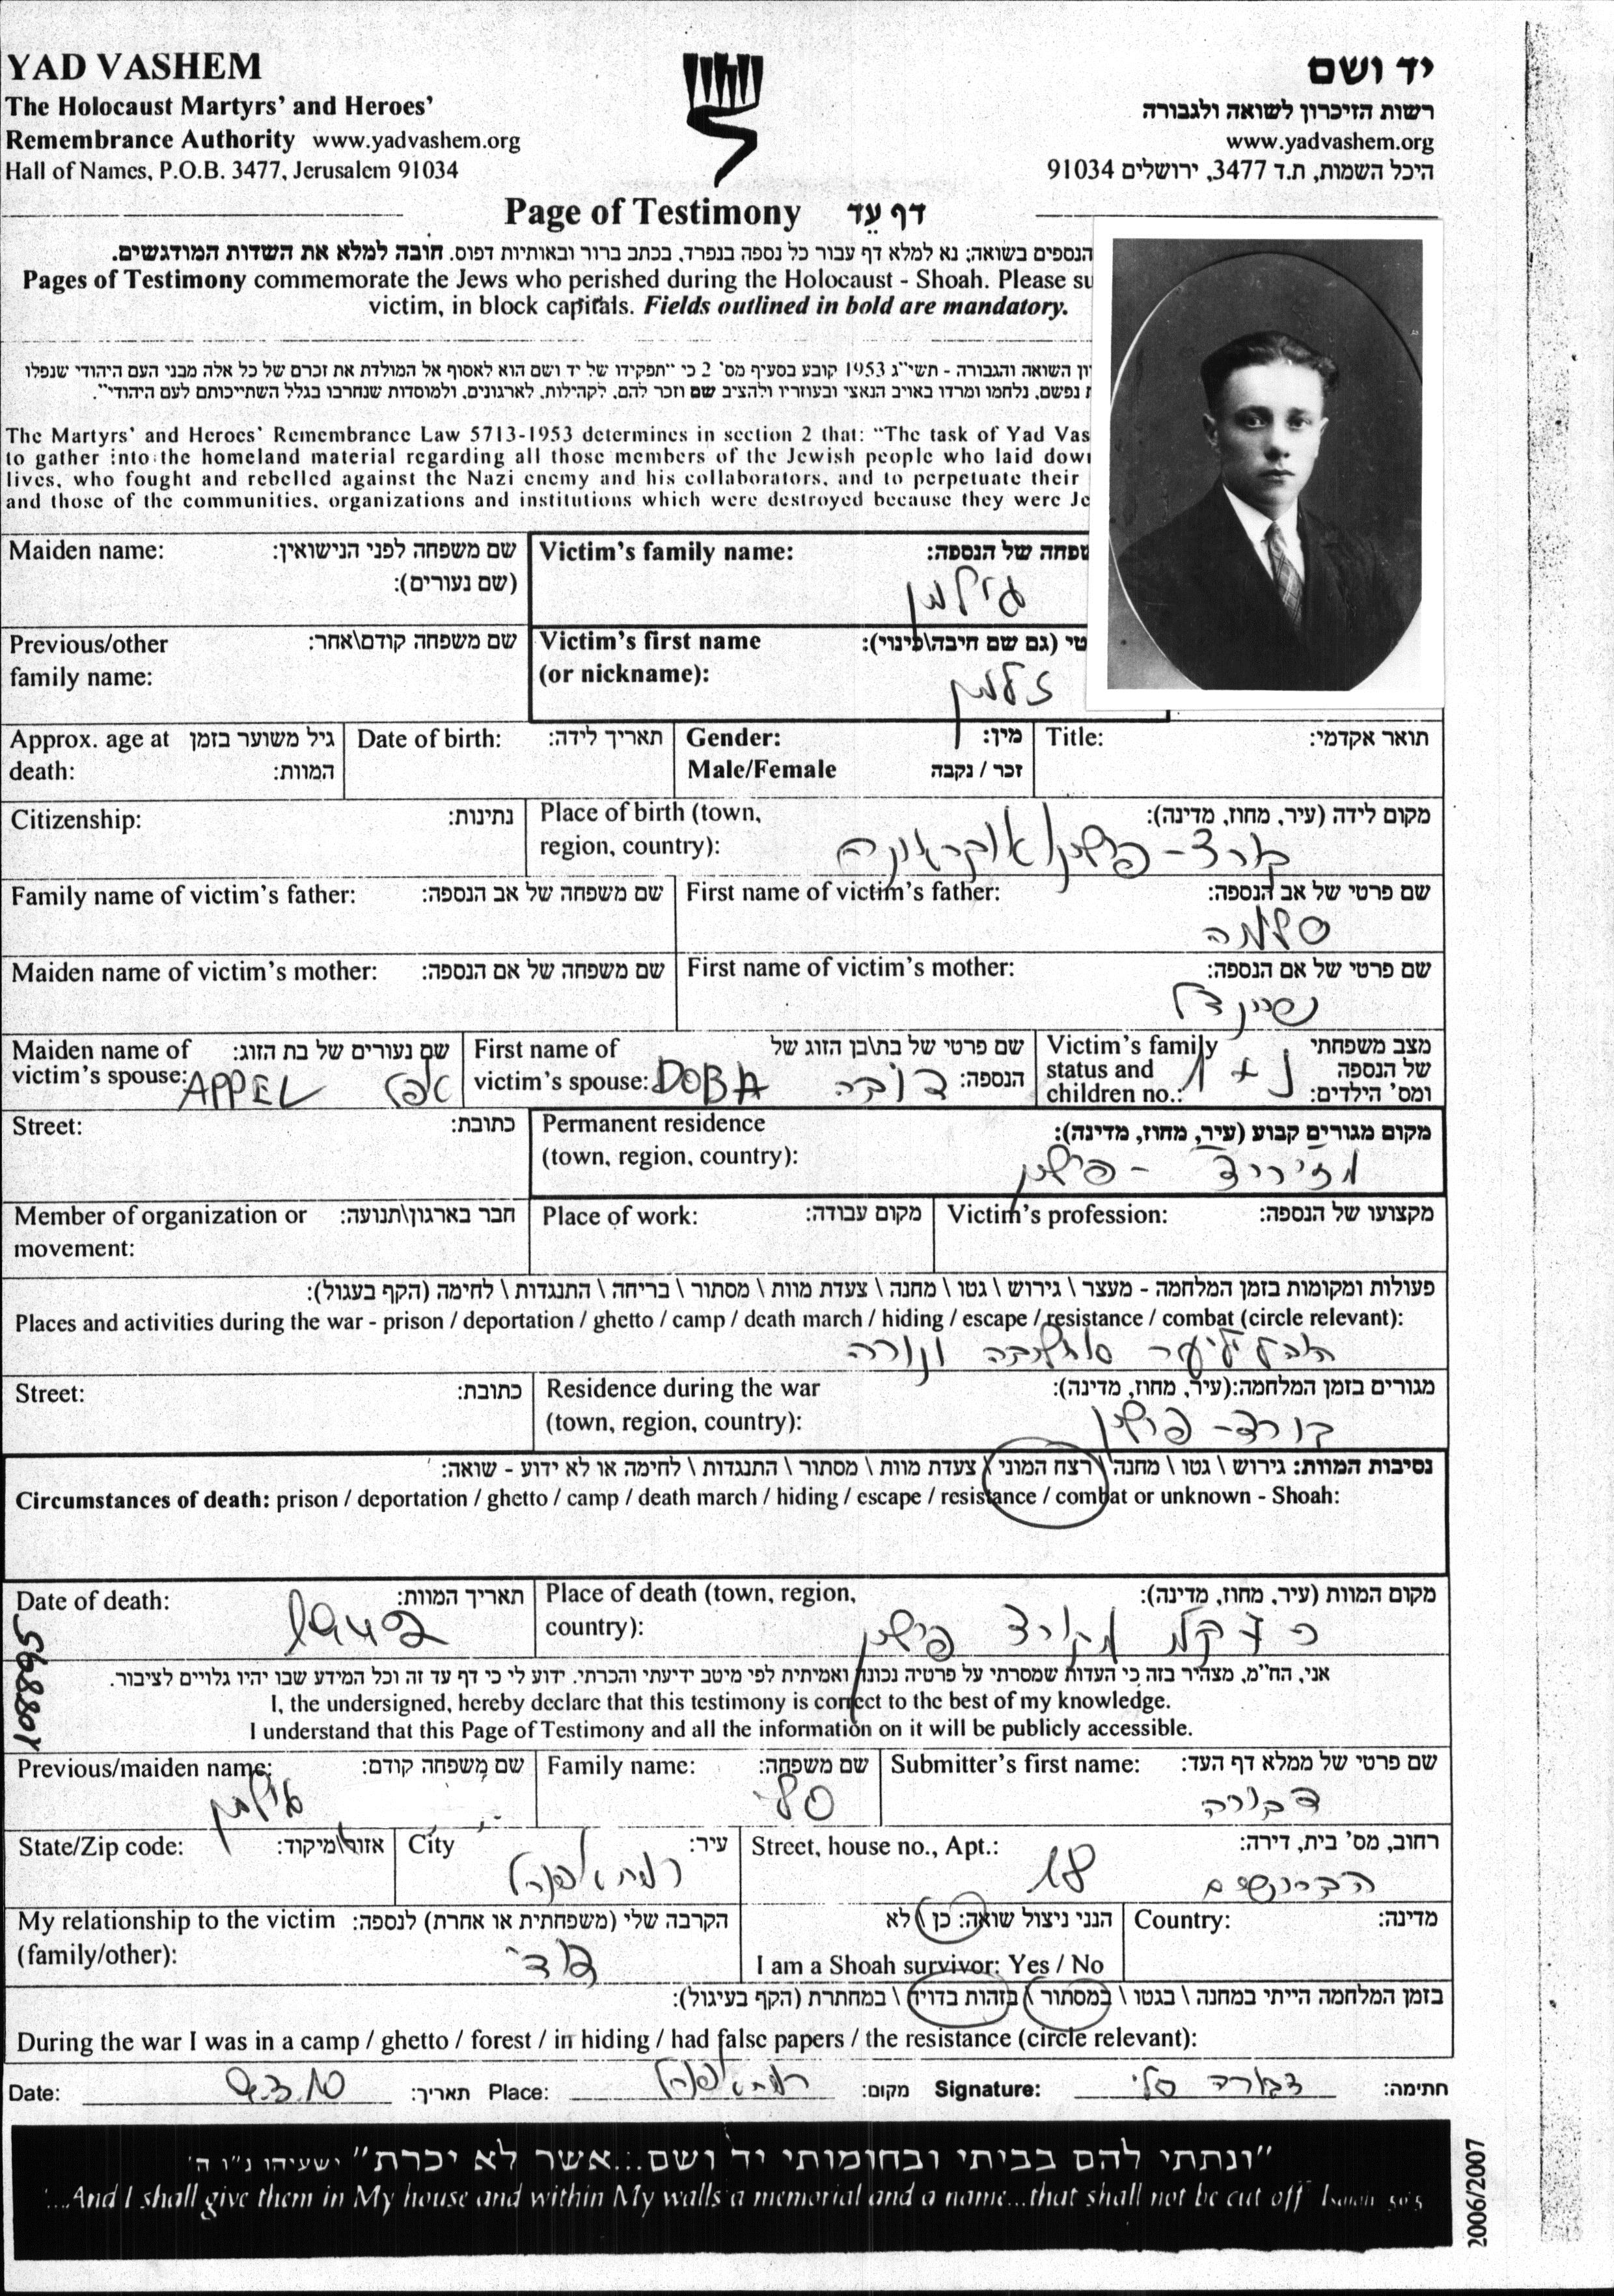 YAD VASHEM
The Holocaust Martyrs' and Heroes'
Remembrance Authority www.yadvashem.org
Hall of Names, P.O.B. 3477, Jerusalem 91034
יד ושם
רשות הזיכרון לשואה ולגבורה
www.yadvashem.org
היכל השמות, ת.ד 3477, ירושלים 91034
Page of Testimony דף עד
הנספים בשואה; נא למלא דף עבור כל נספה בנפרד, בכתב ברור ובאותיות דפוס. חובה למלא את השדות המודגשים.
Pages of Testimony commemorate the Jews who perished during the Holocaust - Shoah. Please su
victim, in block capitals. Fields outlined in bold are mandatory.
ון השואה והגבורה - תשי"ג 1953 קובע בסעיף מס' 2 כי "תפקידו של יד ושם הוא לאסוף אל המולדת את זכרם של כל אלה מבני העם היהודי שנפלו
ת נפשם, נלחמו ומרדו באויב הנאצי ובעוזריו ולהציב שם וזכר להם, לקהילות, לארגונים, ולמוסדות שנחרבו בגלל השתייכותם לעם היהודי".
The Martyrs' and Heroes' Remembrance Law 5713-1953 determines in section 2 that: "The task of Yad Vas
to gather into the homeland material regarding all those members of the Jewish people who laid dow
lives, who fought and rebelled against the Nazi enemy and his collaborators, and to perpetuate their
and those of the communities, organizations and institutions which were destroyed because they were Je
Maiden name: שם משפחה לפני הנישואין:
(שם נעורים):
Victim's family name: שפחה של הנספה:
גילמן
Previous/other שם משפחה קודם\אחר:
family name:
Victim's first name טי (גם שם חיבה\כינוי):
(or nickname): זלמן
Approx. age at גיל משוער בזמן
death: המוות:
Date of birth: תאריך לידה:
Gender: מין:
Male/Female זכר / נקבה
Title: תואר אקדמי:
Citizenship: נתינות:
Place of birth (town, מקום לידה (עיר, מחוז, מדינה):
region, country): קורצ - פולין אוקראינה
Family name of victim's father: שם משפחה של אב הנספה:
First name of victim's father: שם פרטי של אב הנספה:
שלמה
Maiden name of victim's mother: שם משפחה של אם הנספה:
First name of victim's mother: שם פרטי של אם הנספה:
Maiden name of שם נעורים של בת הזוג:
victim's spouse: APPEL אפל
First name of שם פרטי של בת\בן הזוג של
victim's spouse: DOBA דובה הנספה:
Victim's family מצב משפחתי
status and של הנספה
children no.: ומס' הילדים:
נ + 1
Street: כתובת:
Permanent residence מקום מגורים קבוע (עיר, מחוז, מדינה):
(town, region, country): מזיריצ - פולין
Member of organization or חבר בארגון\תנועה:
movement:
Place of work: מקום עבודה:
Victim's profession: מקצועו של הנספה:
פעולות ומקומות בזמן המלחמה - מעצר \ גירוש \ גטו \ מחנה \ צעדת מוות \ מסתור \ בריחה \ התנגדות \ לחימה (הקף בעגול):
Places and activities during the war - prison / deportation / ghetto / camp / death march / hiding / escape / resistance / combat (circle relevant):
Street: כתובת:
Residence during the war מגורים בזמן המלחמה:(עיר, מחוז, מדינה):
(town, region, country): קורצ - פולין
נסיבות המוות: גירוש \ גטו \ מחנה \ רצח המוני \ צעדת מוות \ מסתור \ התנגדות \ לחימה או לא ידוע - שואה:
Circumstances of death: prison / deportation / ghetto / camp / death march / hiding / escape / resistance / combat or unknown - Shoah:
Date of death: תאריך המוות:
Place of death (town, region, מקום המוות (עיר, מחוז, מדינה):
country): קורצ פולין
אני, הח"מ, מצהיר בזה כי העדות שמסרתי על פרטיה נכונה ואמיתית לפי מיטב ידיעתי והכרתי. ידוע לי כי דף עד זה וכל המידע שבו יהיו גלויים לציבור.
I, the undersigned, hereby declare that this testimony is correct to the best of my knowledge.
I understand that this Page of Testimony and all the information on it will be publicly accessible.
Previous/maiden name: שם משפחה קודם:
גילמן
Family name: שם משפחה:
סלי
Submitter's first name: שם פרטי של ממלא דף העד:
דבורה
State/Zip code: אזור\מיקוד:
City עיר:
רמת השרון
Street, house no., Apt.: רחוב, מס' בית, דירה:
18
My relationship to the victim הקרבה שלי (משפחתית או אחרת) לנספה:
(family/other): דוד
הנני ניצול שואה: כן \ לא
I am a Shoah survivor: Yes / No
Country: מדינה:
בזמן המלחמה הייתי במחנה \ בגטו \ במסתור \ בזהות בדויה \ במחתרת (הקף בעיגול):
During the war I was in a camp / ghetto / forest / in hiding / had false papers / the resistance (circle relevant):
Date: 9.3.10 תאריך: Place: מקום: Signature: דבורה סלי חתימה:
"ונתתי להם בביתי ובחומותי יד ושם...אשר לא יכרת" ישעיהו נ"ו ה'
"...And I shall give them in My house and within My walls a memorial and a name...that shall not be cut off" Isaiah 56:5
2006/2007